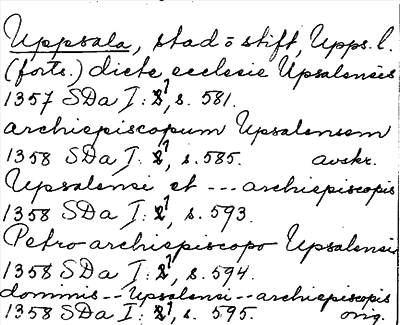 Uppsala, stad o stift, Upps. l.
(forts.) dicte ecclesie Upsalensis
1357 SDa I: 2, s. 581.
archiepiscopum Upsalensem
1358 SDa I: 2, s. 585. avskr.
Upsalensi et --- archiepiscopis
1358 SDa I: 2, s. 593.
Petro archiepiscopo Upsalensi
1358 SDa I: 2, s. 594.
dominis -- Upsalensi -- archiepiscopis
1358 SDa I: 2, s. 595. orig.